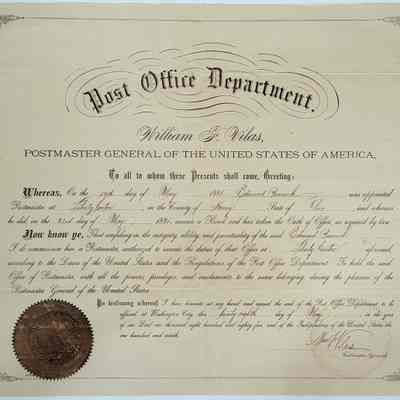 Post Office Department.
William F. Vilas,
POSTMASTER GENERAL OF THE UNITED STATES OF AMERICA,
To all to whom these Presents shall come, Greeting:
Whereas, On the day of May 1885, was appointed
Postmaster at in the County of State of and whereas
he did, on the day of May 1885, execute a Bond, and has taken the Oath of Office, as required by law
Now know ye, That confiding in the integrity, ability and punctuality of the said
I do commission him a Postmaster, authorized to execute the duties of that Office at aforesaid,
according to the Laws of the United States and the Regulations of the Post Office Department: To hold the said
Office of Postmaster, with all the powers, privileges, and emoluments to the same belonging, during the pleasure of the
Postmaster General of the United States.
In testimony whereof, I have hereunto set my hand, and caused the seal of the Post Office Department to be
affixed, at Washington City, this twenty eighth day of May in the year
of our Lord one thousand eight hundred and eighty five and of the Independence of the United States the
one hundred and ninth.
Postmaster General